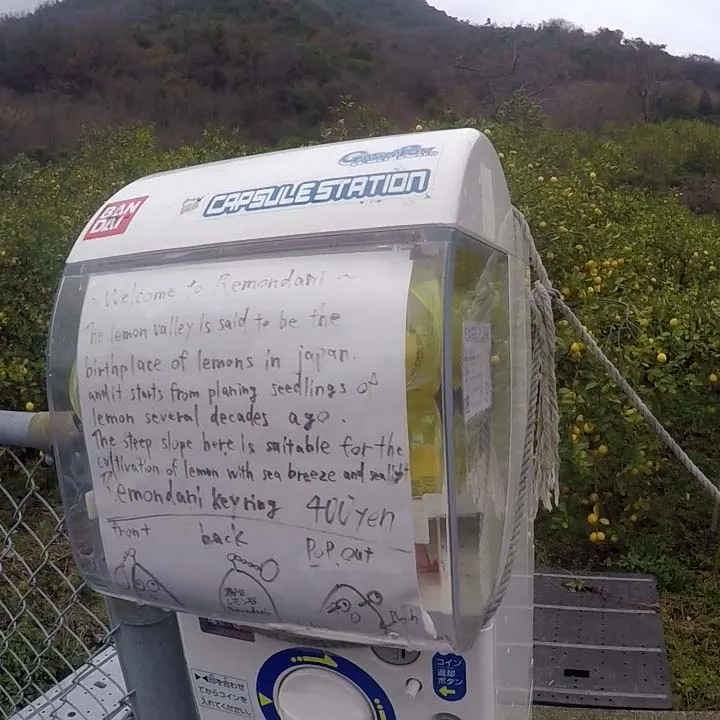 BAN
DAI
CAPSULE STATION
~ Welcome to Remondani ~
The lemon valley is said to be the
birthplace of lemons in japan.
and it starts from planing seedlings of
lemon several decades ago.
The steep slope here is suitable for the
cultivation of lemon with sea breeze and
Remondani keyring 400yen
front back Pop out
コイン
返却
ボタン
印を合わせ
てからコインを
入れてください。